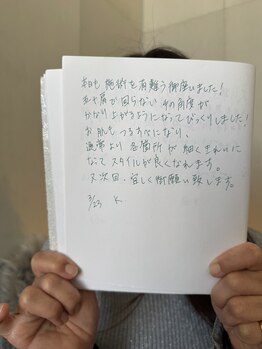 本日も施術を有難う御座いました!
五十肩が回らないその角度が
かなり上がるようになってびっくりしました!
お肌もつるすべになり、
通常より各箇所が細くきれいに
なってスタイルが良くなれます。
又次回、宜しく御願い致します。
3/23 K